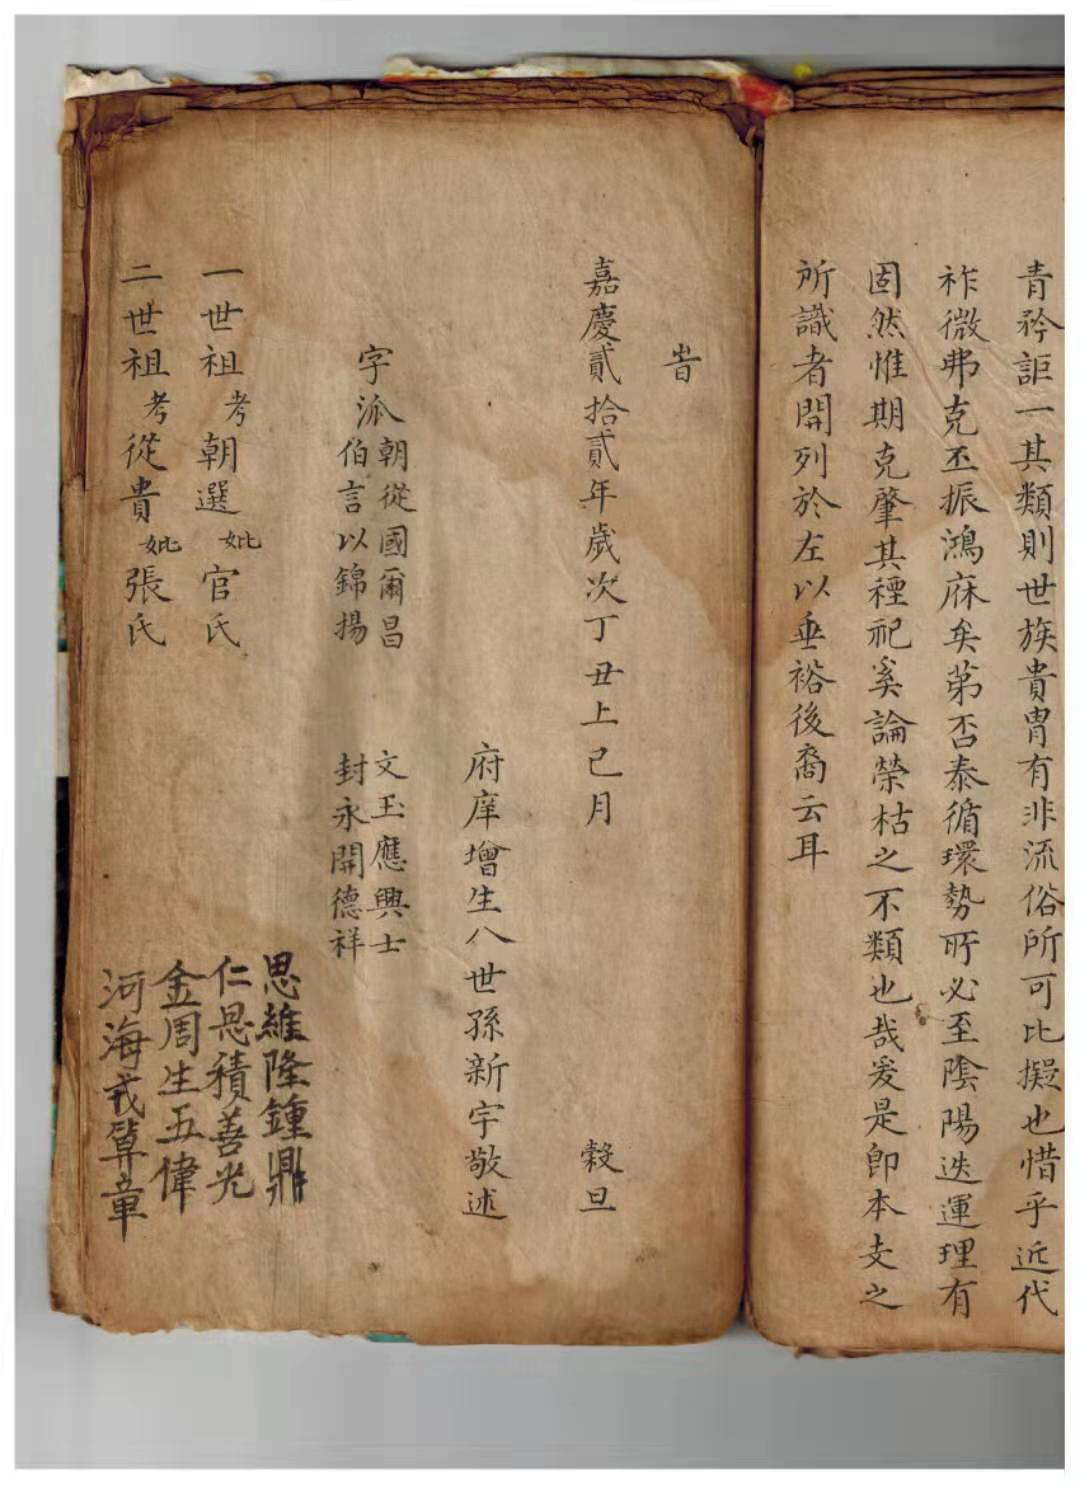 青矜詎一其類則世族貴胄有非流俗所可比擬也惜乎近代
祚微弗克丕振鴻庥矣第否泰循環勢所必至陰陽迭運理有
固然惟期克肇其禋祀奚論榮枯之不類也哉爰是即本支之
所識者開列於左以垂裕後裔云耳
旹
嘉慶貳拾貳年歲次丁丑上巳月 穀旦
府庠增生八世孫新宇敬述
字派
朝從國爾昌 文玉應興士
伯言以錦揚 封永開德祥
思維隆鍾鼎
仁恩積善光
金周生五偉
河海戎算章
一世祖考朝選妣官氏
二世祖考從貴妣張氏